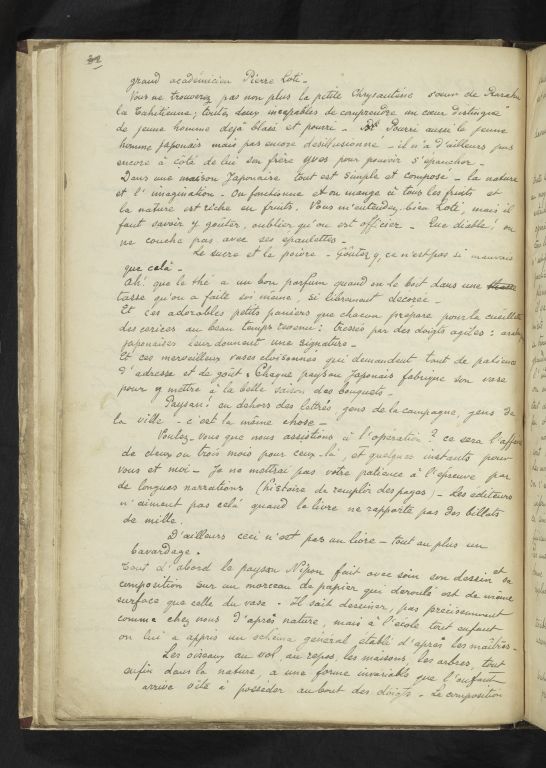 grand académicien Pierre Loti -
Vous ne trouverez pas non plus la petite Chrysantème sœur de Rarahu
la Tahitienne; toutes deux incapables de comprendre un cœur distingué
de jeune homme déjà blasé et pourri - Pourri aussi le jeune
homme japonais mais pas encore désillusionné - il n'a d'ailleurs pas
encore à côté de lui son frère Yves pour pouvoir s'épancher -
Dans une maison Japonaise tout est simple et composé - la nature
et l'imagination. On fonctionne et on mange ici tous les fruits et
la nature est riche en fruits. Vous m'entendez bien Loti, mais il
faut savoir y goûter, oublier qu'on est officier - Que diable! on
ne couche pas avec ses épaulettes -
Le sucre et le poivre - Goûtez y, ce n'est pas si mauvais
que celà -
Ah! que le thé a un bon parfum quand on le boit dans une
tasse qu'on a faite soi même, si librement décorée -
Et ces adorables petits paniers que chacun prépare pour la cueillette
des cerises au beau temps revenu: tressés par des doigts agiles:
japonaises leur donnent une signature -
Et ces merveilleux vases cloisonnés qui demandent tant de patience
d'adresse et de goût. Chaque paysan Japonais fabrique son vase
pour y mettre à la belle saison des bouquets -
Paysan! en dehors des lettrés, gens de la campagne, gens de
la ville - c'est la même chose -
Voulez-vous que nous assistions à l'opération? ce sera l'affaire
de deux ou trois mois pour ceux-là, et quelques instants pour
vous et moi - Je ne mettrai pas votre patience à l'épreuve par
de longues narrations (histoire de remplir des pages) - Les éditeurs
n'aiment pas celà quand la livre ne rapporte pas des billets
de mille.
D'ailleurs ceci n'est pas un livre - tout au plus un
bavardage.
Tout d'abord le paysan Nipon fait avec soin son dessin et sa
composition sur un morceau de papier qui déroulé est de même
surface que celle du vase - Il sait dessiner, pas précisément
comme chez nous d'après nature, mais à l'école tout enfant
on lui a appris un schéma général établi d'après les maîtres -
Les oiseaux au vol, au repos, les maisons, les arbres, tout
enfin dans la nature, a une forme invariable que l'enfant
arrive vite à posséder au bout des doigts - La composition